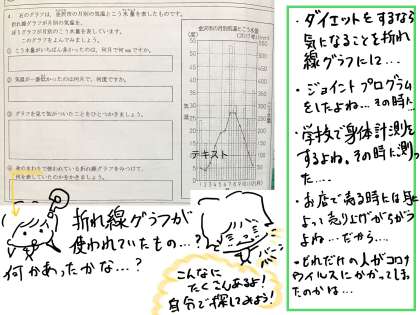 4. 右のグラフは、金沢市の月別の気温とこう水量を表したものです。
折れ線グラフが月別の気温を、
ぼうグラフが月別のこう水量を表しています。
このグラフをよんでみましょう。
① こう水量がいちばん多かったのは、何月で何mmですか。
② 気温が一番
③ グラフを見て気がついたことをひとつかきましょう。
④ 身のまわりで使われている折れ線グラフをみつけて、
何を表していたのかをかきましょう。
金沢市の月別気温とこう水量
テキスト
1 2 3 4 5 6 7 8 9 10 11 12(月)
折れ線グラフが
使われていたもの…?
何かあったかな…?
バーン
こんなに
たくさんあるよ!
自分で探してみよう!
・ダイエットをするなら
気になることを折れ
線グラフにして…
・ジョイントプログラム
をしたよね…その時に…
・学校で身体計測を
するよね。その時に測っ
た….
・お店で売る時には
よって売り上げがちがう
よね…だから…
・どれだけの人がコロナ
ウイルスにかかってしまっ
たのかは…